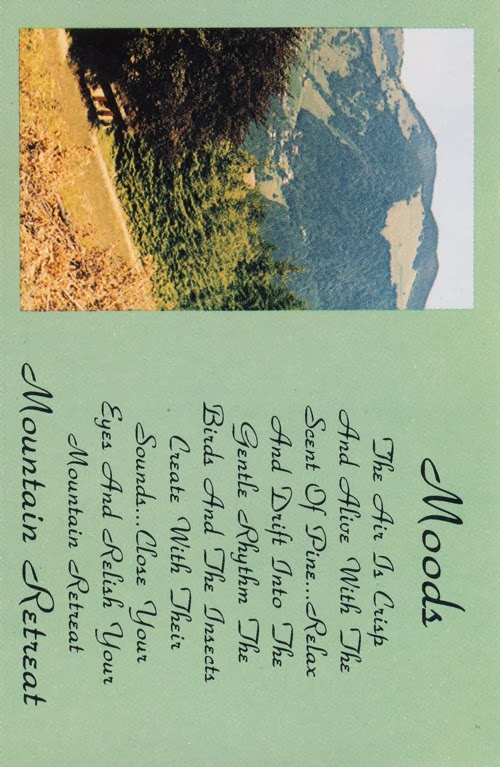 Moods
The Air Is Crisp
And Alive With The
Scent Of Pine...Relax
And Drift Into The
Gentle Rhythm The
Birds And The Insects
Create With Their
Sounds...Close Your
Eyes And Relish Your
Mountain Retreat
Mountain Retreat